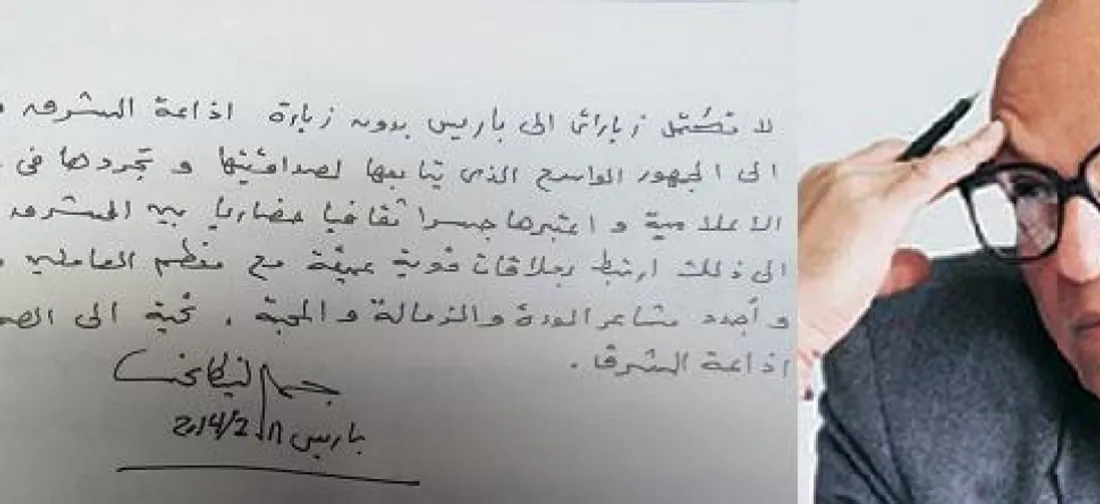 لا تكتمل زياراتى الى باريس بدون زيارة اذاعة الشرق
الى الجمهور الواسع الذى يتابعها لصداقيتها و تجردها فى
الاعلامية و اعتبرها جسرا ثقافيا حضاريا بين المشرق
الى ذلك ارتبط بعلاقات قوية عميقة مع معظم العاملين
و أجدد مشاعر المودة والزمالة والمحبة . تحية الى
اذاعة الشرق .
باريس